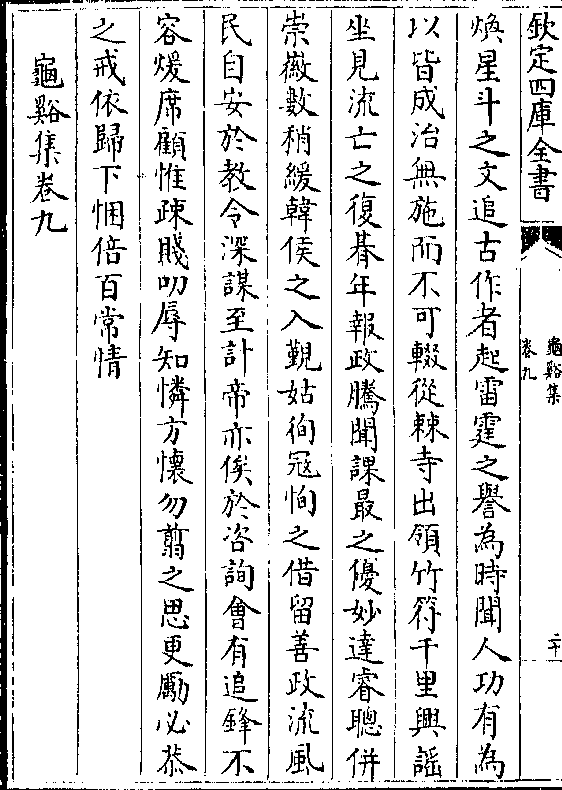 欽定四庫全書
龜谿集
卷九
二十
煥星斗之文追古作者起雷霆之譽為時聞人功有為
以皆成治無施而不可輟從棘寺出領竹符千里興謡
坐見流亡之復朞年報政騰聞課最之優妙達睿聰併
崇徽數稍緩韓侯之入覲姑徇冦恂之借留善政流風
民自安於教令深謀至計帝亦俟於咨詢會有追鋒不
容煖席顧惟疎賤叨辱知憐方懷勿翦之思更勵必恭
之戒依歸下悃倍百常情
龜谿集卷九